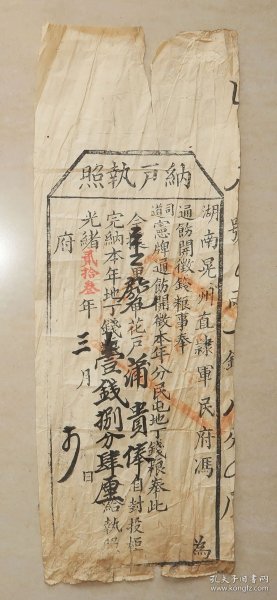 納戶執照
湖南晃州直隸軍民府馮 為
通飭開徵錢粮事奉
司道憲牌通飭開徵本年分民屯地丁錢粮奉此
花戶蒲貴俸自封投柜
完納本年地丁錢壹錢捌分肆厘給執照
光緒貳拾叁年 三月 日
府
孔夫子旧书网